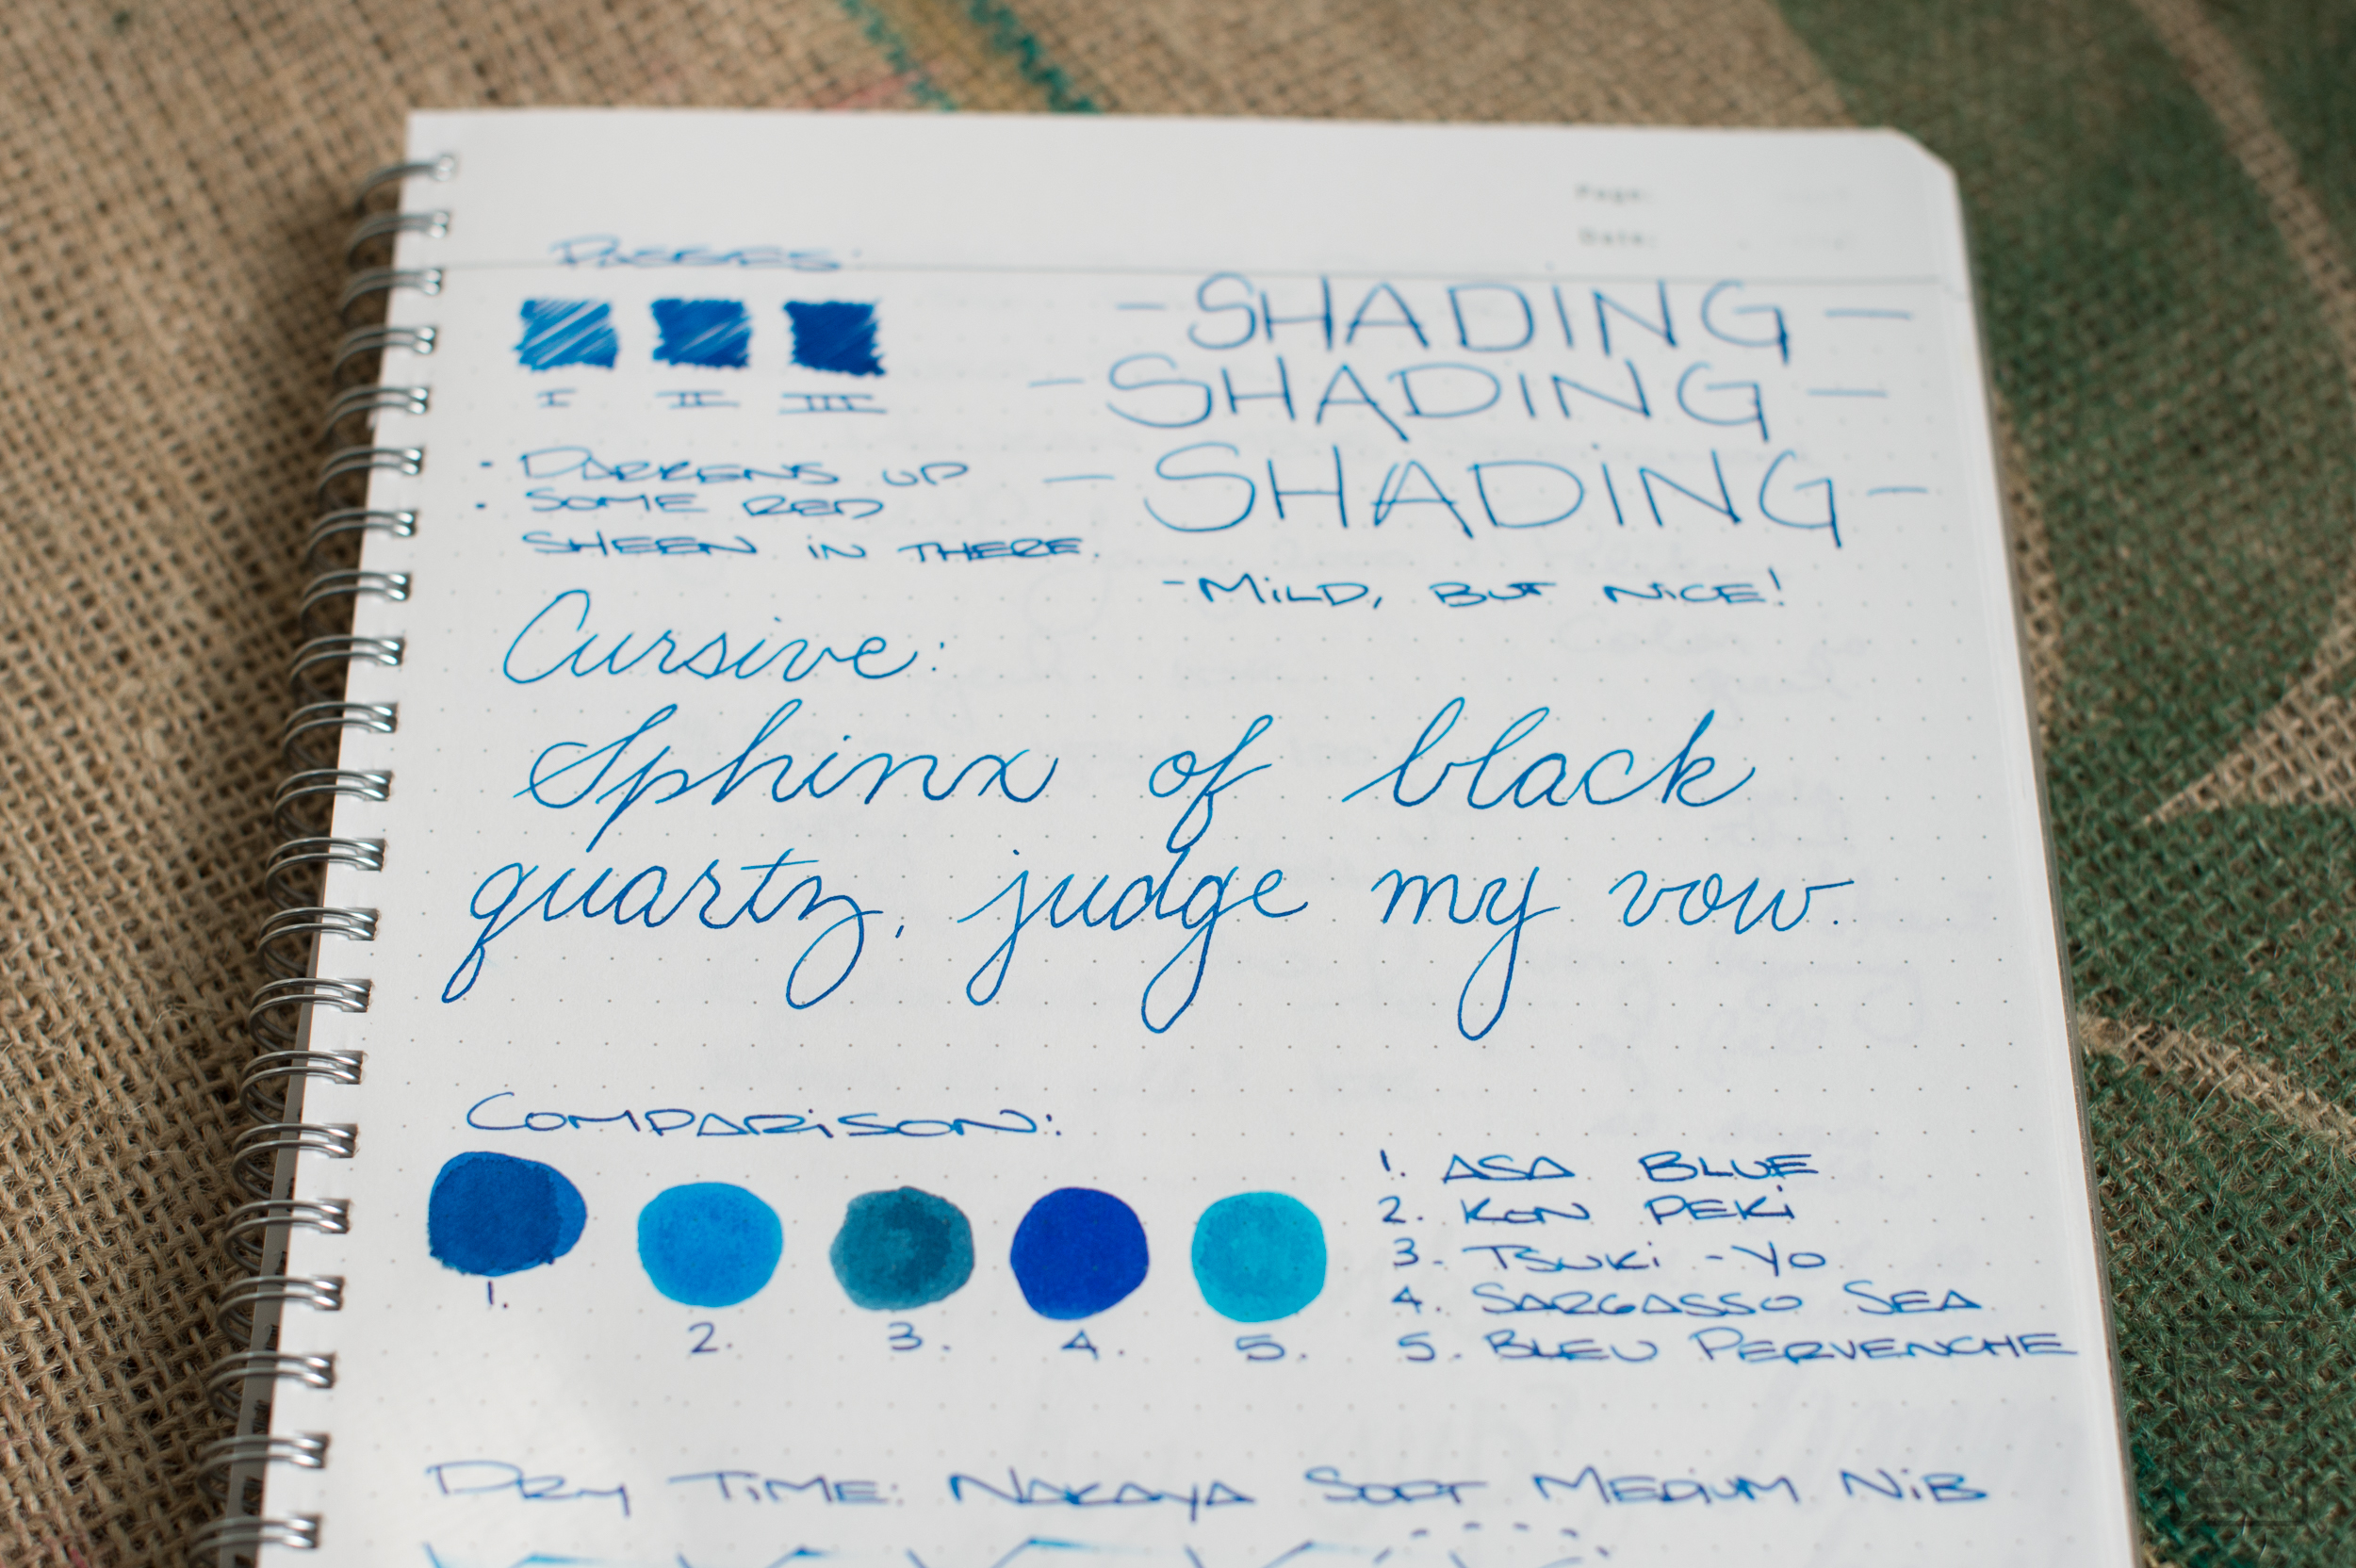 Page:
Date:
PASSES:
I II III
- SHADING -
- SHADING -
- SHADING -
· DARKENS UP
· SOME RED
SHEEN IN THERE.
- MILD, BUT NICE!
Cursive:
Sphinx of black
quartz, judge my vow.
COMPARISON:
1. 2. 3. 4. 5.
1. ASA BLUE
2. KON PEKI
3. TSUKI-YO
4. SARGASSO SEA
5. BLEU PERVENCHE
DRY TIME: NAKAYA SOFT MEDIUM NIB